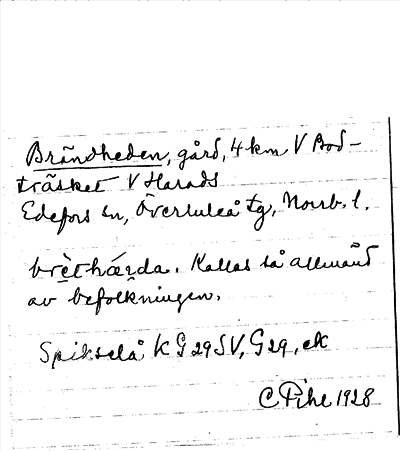 Brändheden, gård, 4 km V Bod-
träsket V Harads
Edefors sn, Överluleå tg, Norrb. l.
Kallas så allmänt
av befolkningen.
Spikselå K G 29 SV, G 29, ek
C Pihl 1928